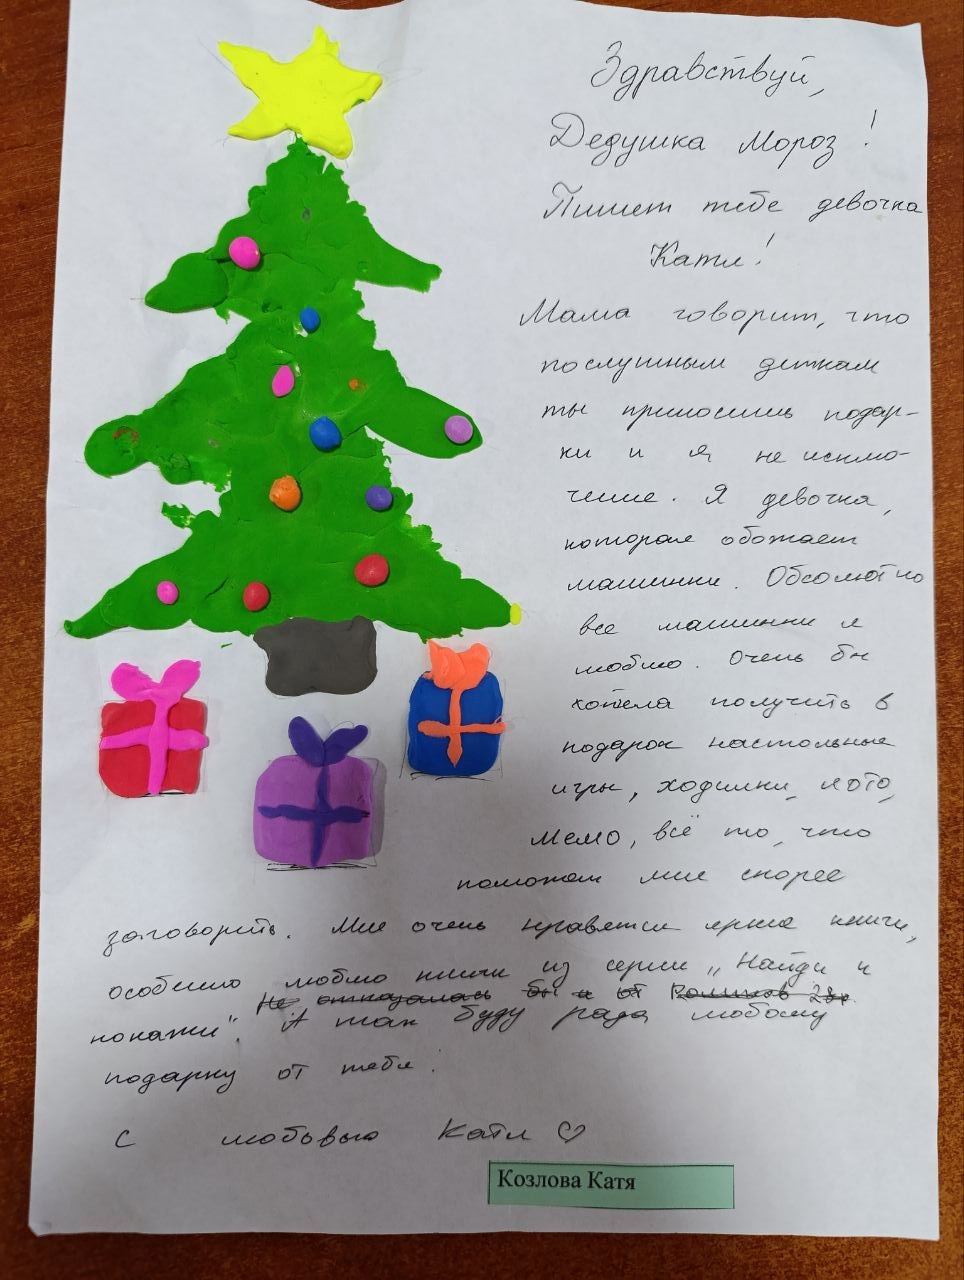 Здравствуй,
Дедушка Мороз!
Пишет тебе девочка
Катя!
Мама говорит, что
послушным деткам
ты приносишь подар-
ки и я не исклю-
чение. Я девочка,
которая обожает
машинки. Обсолютно
все машинки я
люблю. Очень бы
хотела получить в
подарок настольные
игры, ходилки, лото,
мемо, всё то, что
поможет мне скорее
заговорить. Мне очень нравятся яркие книги,
особенно люблю книги из серии „Найди и
Не отказалась бы и от роликов 28р.
покажи". А так буду рада любому
подарку от тебя.
С любовью Катя ♡
Козлова Катя